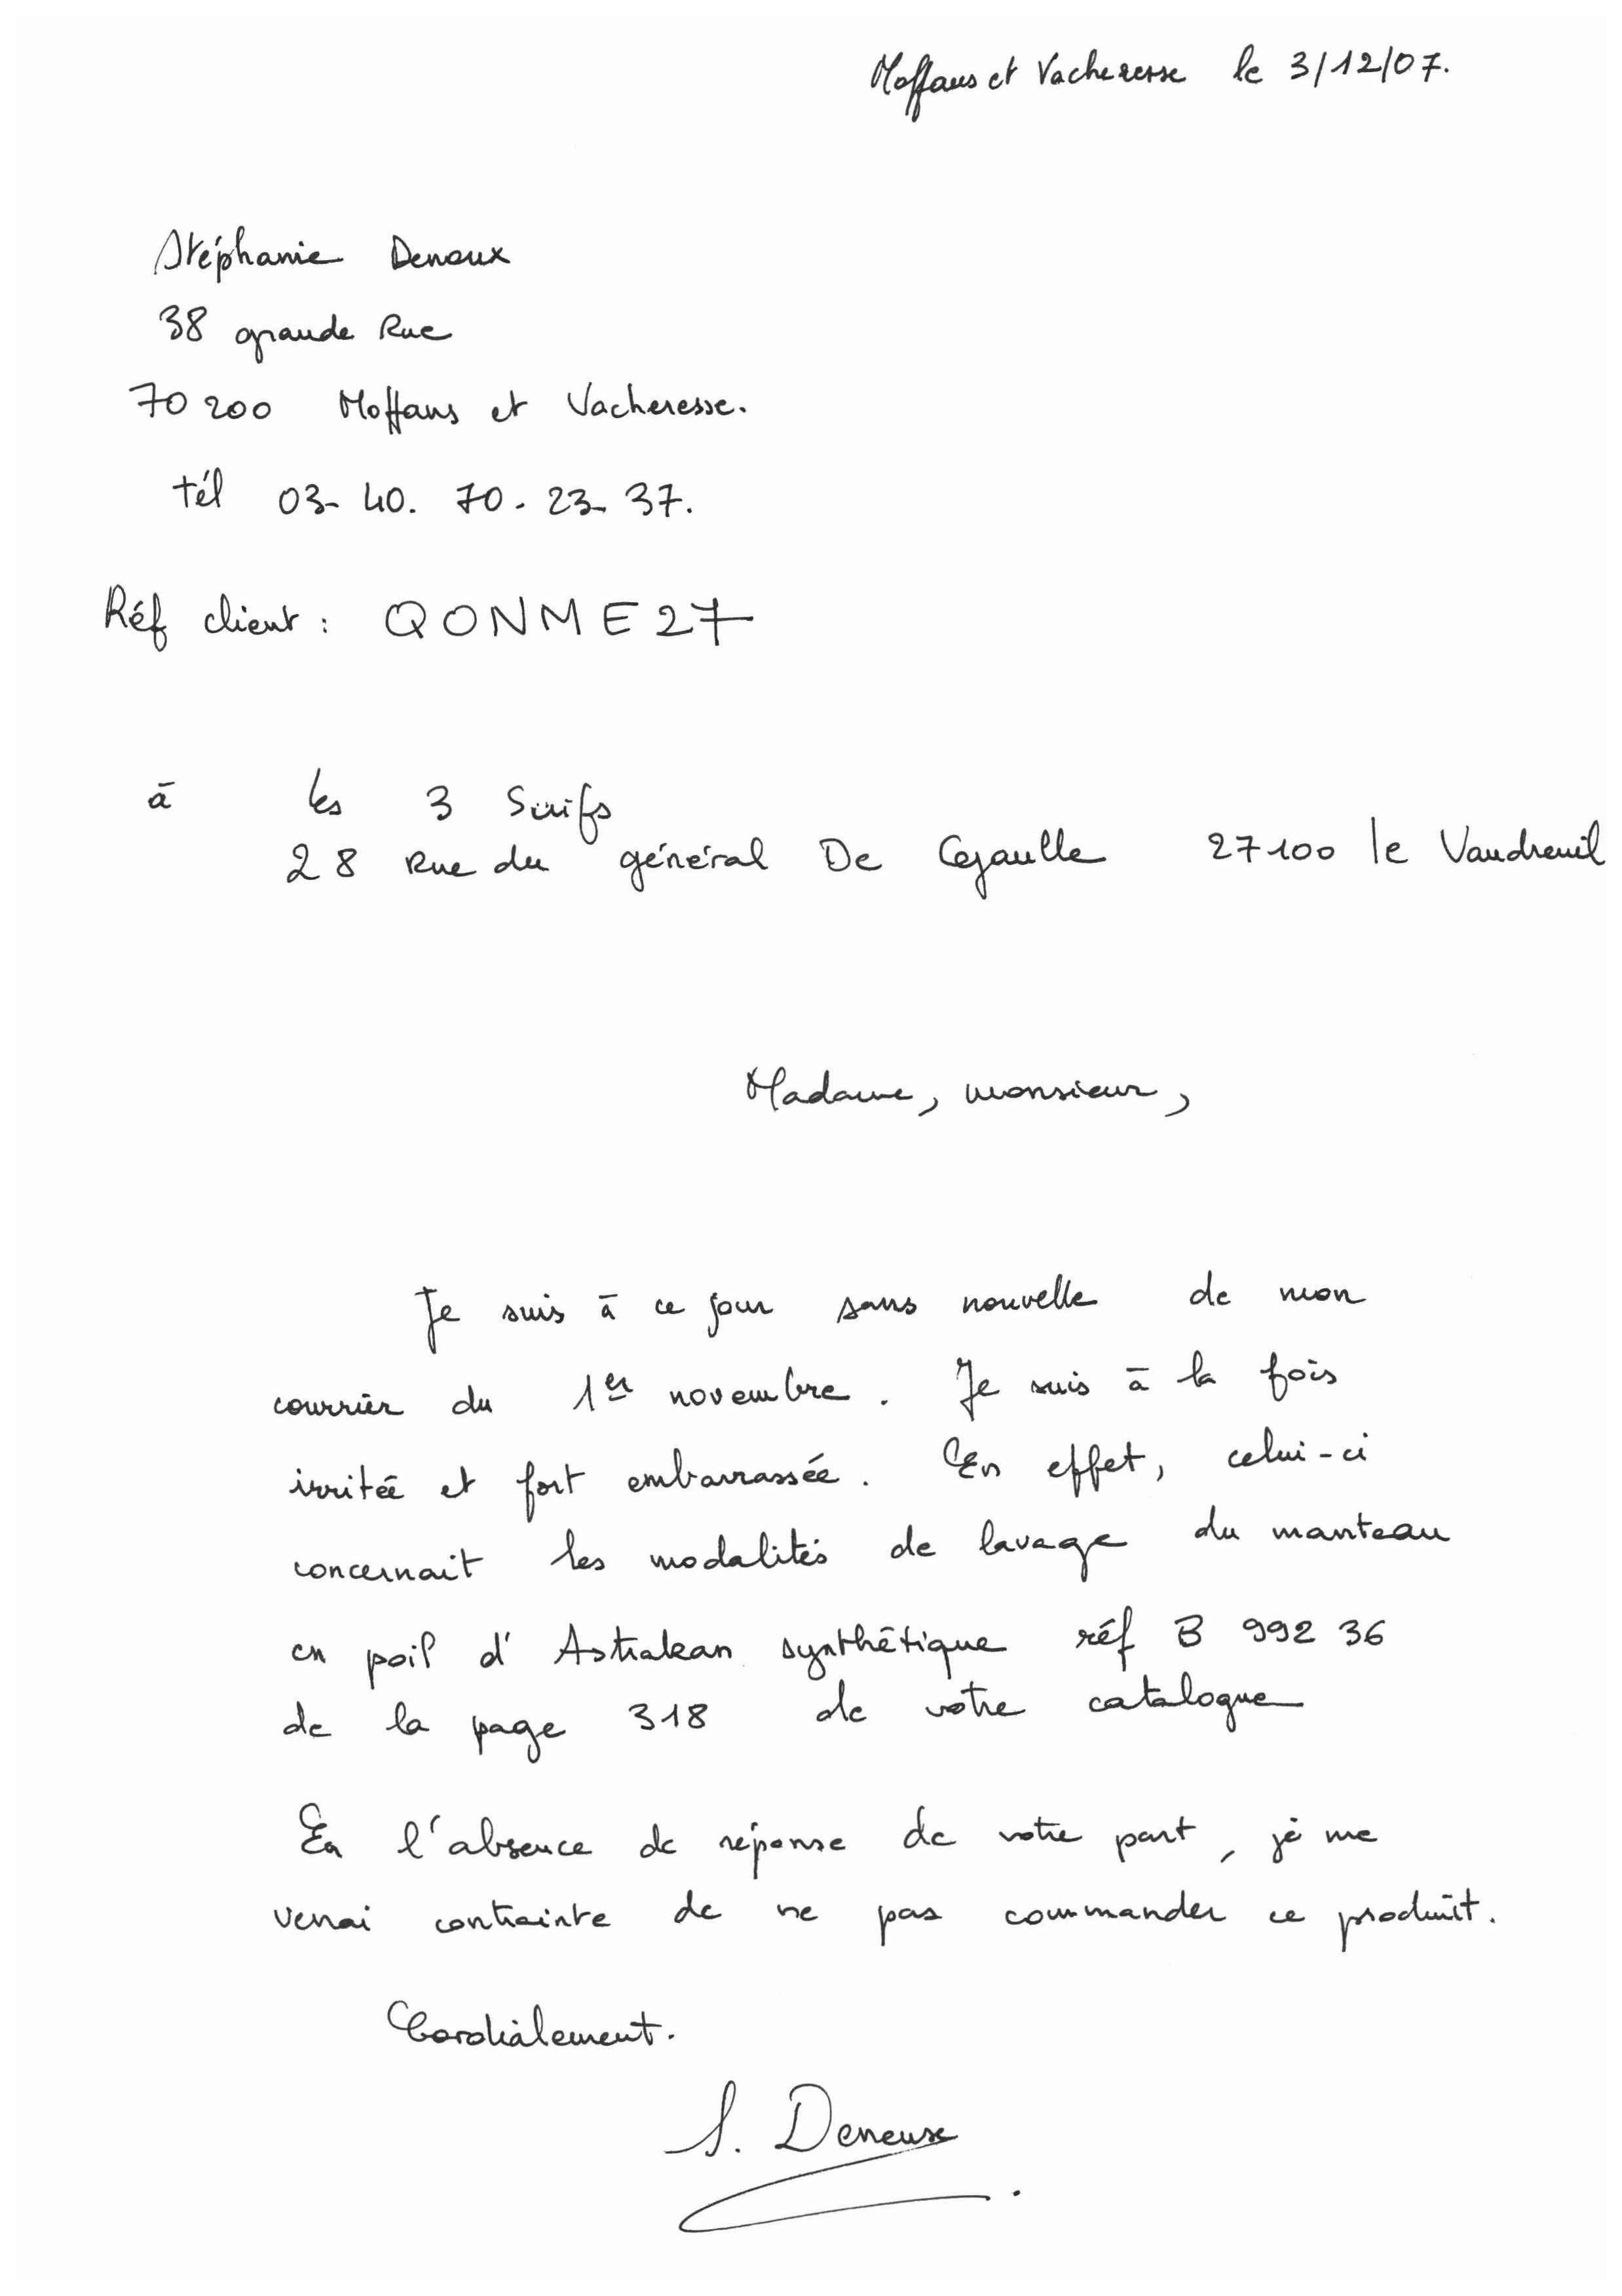 Moffans et Vacheresse le 3/12/07.
Stéphanie Denoux
38 grande Rue
70200 Moffans et Vacheresse.
tél 03-40.70.23.37.
Réf client : QONME27
à les 3 Suifs
28 Rue du général De Gaulle 27100 le Vaudreuil
Madame, monsieur,
Je suis à ce jour sans nouvelle de mon
courrier du 1er novembre. Je suis à la fois
irritée et fort embarrassée. En effet, celui-ci
concernait les modalités de lavage du manteau
en poil d'Astrakan synthétique réf B 992 36
de la page 318 de votre catalogue
En l'absence de réponse de votre part, je me
verrai contrainte de ne pas commander ce produit.
Cordialement.
S. Deneuse